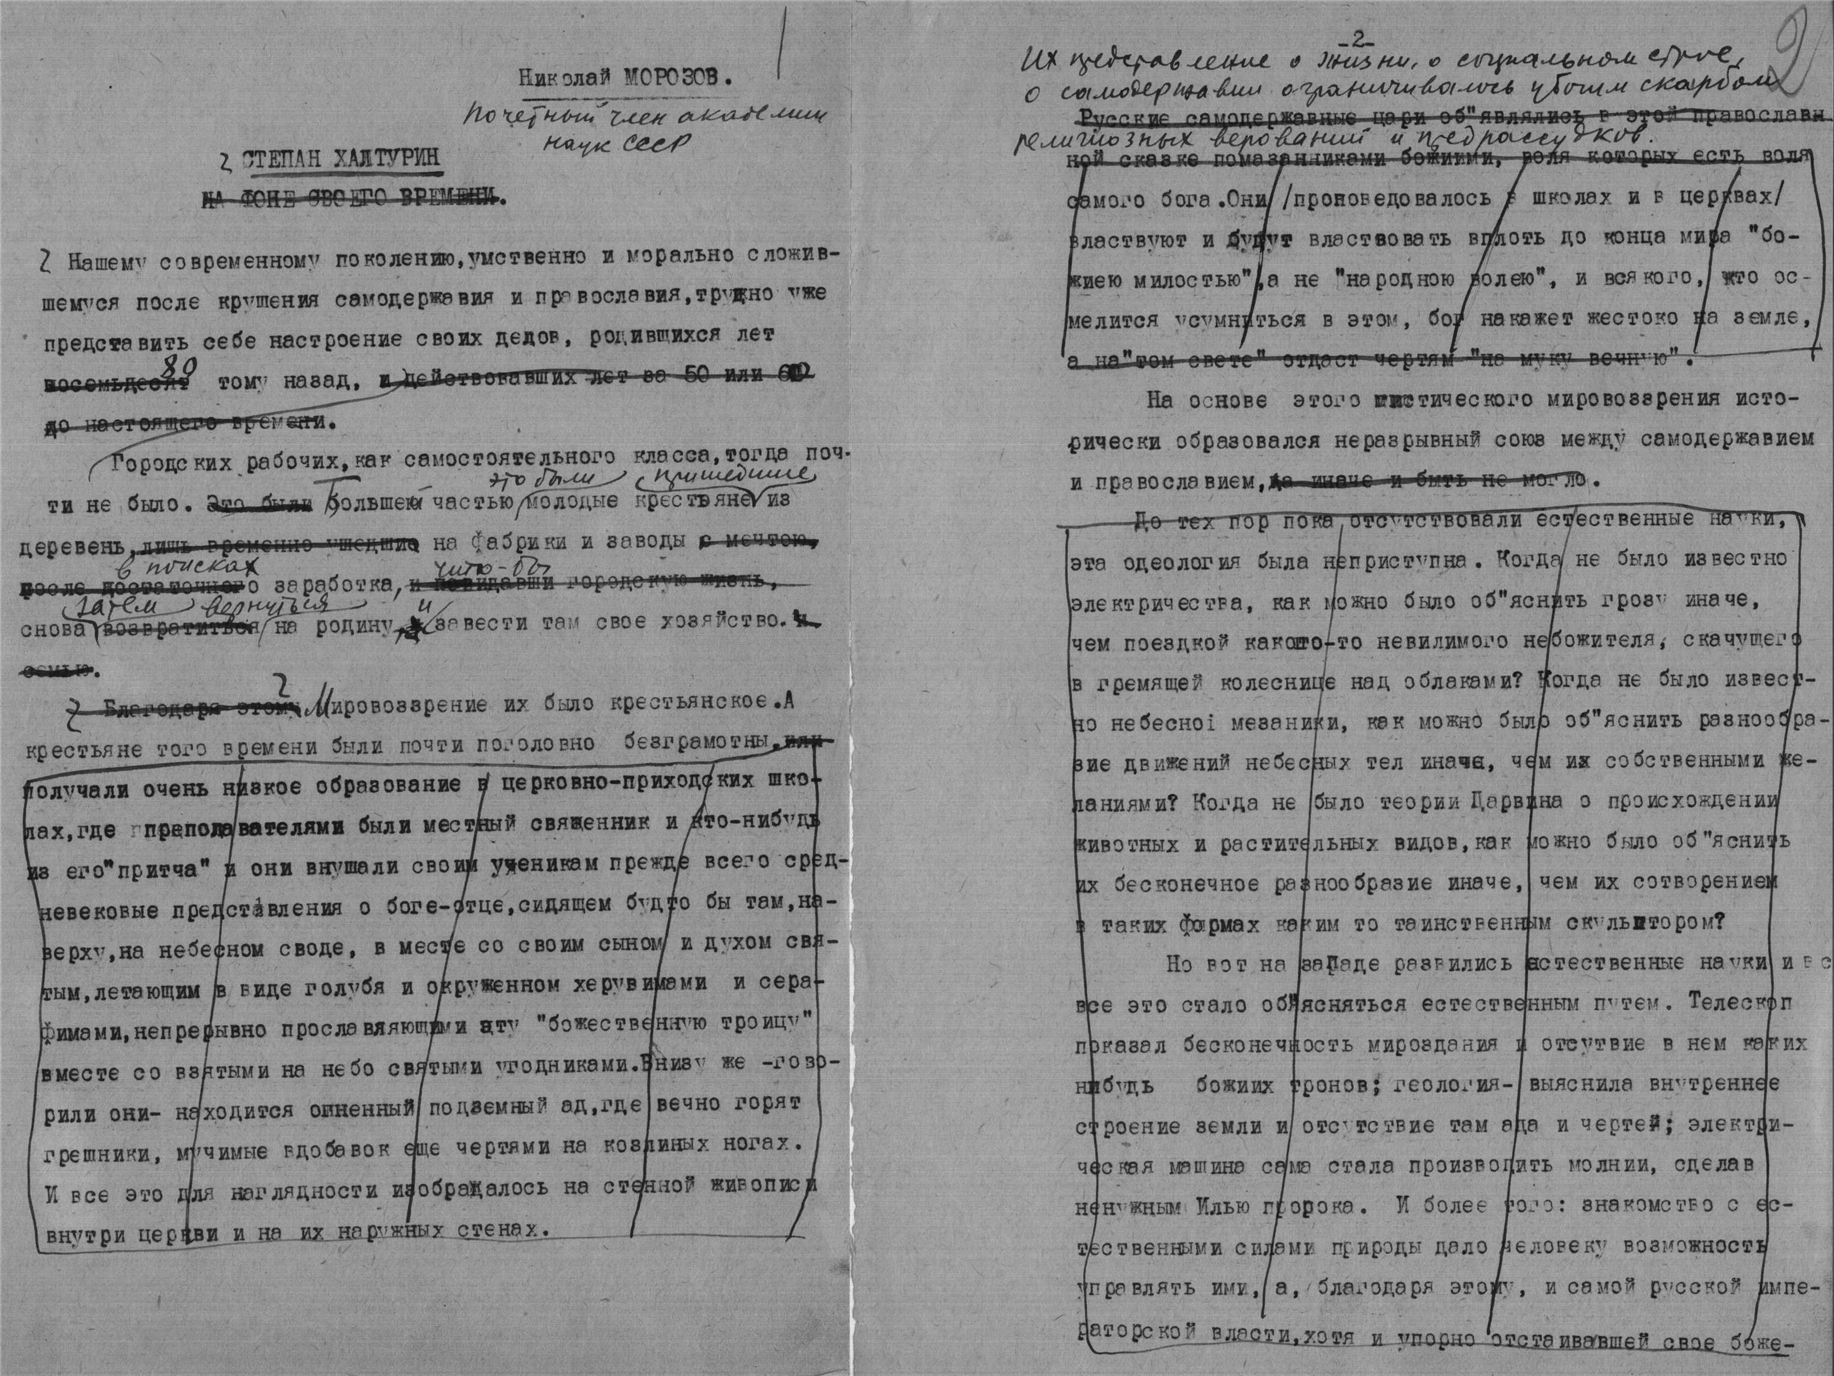 1
Николай МОРОЗОВ.
Почетный член академии
наук СССР
СТЕПАН ХАЛТУРИН
НА ФОНЕ СВОЕГО ВРЕМЕНИ.
Нашему современному поколению,умственно и морально сложив-
шемуся после крушения самодержавия и православия,трудно уже
представить себе настроение своих дедов, родившихся лет
80
восемьдесят тому назад, и действовавших лет за 50 или 60
до настоящего времени.
Городских рабочих,как самостоятельного класса,тогда поч-
это были пришедшие
ти не было. Это были большей частью молодые крестьяне из
деревень,лишь временно ушедшие на фабрики и заводы с мечтою,
в поисках что-бы
после достаточного заработка,и повидавши городскую жизнь,
затем вернуться и
снова возвратиться на родину, завести там свое хозяйство.и
семью.
Благодаря этому Мировоззрение их было крестьянское.А
крестьяне того времени были почти поголовно безграмотны,или
получали очень низкое образование в церковно-приходских шко-
лах,где преподавателями были местный священник и кто-нибудь
из его"притча" и они внушали своим ученикам прежде всего сред-
невековые представления о боге-отце,сидящем будто бы там,на-
верху,на небесном своде, в месте со своим сыном и духом свя-
тым,летающим в виде голубя и окруженном херувимами и сера-
фимами,непрерывно прославляющими эту "божественную троицу"
вместе со взятыми на небо святыми угодниками.Внизу же -гово-
рили они- находится огненный подземный ад,где вечно горят
грешники, мучимые вдобавок еще чертями на козлиных ногах.
И все это для наглядности изображалось на стенной живописи
внутри церкви и на их наружных стенах.
-2-
2
Их представление о жизни, о социальном строе,
о самодержавии ограничивалось убогим скарбом
Русские самодержавные цари об"являлись в этой православ
религиозных верований и предрассудков.
ной сказке помазанниками божиими, воля которых есть воля
самого бога.Они /проповедовалось в школах и в церквах/
властвуют и будут властвовать вплоть до конца мира "бо-
жиею милостью",а не "народною волею", и всякого, кто ос-
мелится усумниться в этом, бог накажет жестоко на земле,
а на"том свете" отдаст чертям "на муку вечную".
На основе этого мистического мировоззрения исто-
рически образовался неразрывный союз между самодержавием
и православием,да иначе и быть не могло.
До тех пор пока отсутствовали естественные науки,
эта одеология была неприступна. Когда не было известно
электричества, как можно было об"яснить грозу иначе,
чем поездкой какого-то невилимого небожителя, скачущего
в гремящей колеснице над облаками? Когда не было извест-
но небесноi мезаники, как можно было об"яснить разнообра-
зие движений небесных тел иначе, чем их собственными же-
ланиями? Когда не было теории Дарвина о происхождении
животных и растительных видов,как можно было об"яснить
их бесконечное разнообразие иначе, чем их сотворением
в таких формах каким то таинственным скульптором?
Но вот на западе развились естественные науки и в с
все это стало об"ясняться естественным путем. Телескоп
показал бесконечность мироздания и отсутвие в нем каких
нибудь божиих тронов; геология- выяснила внутреннее
строение земли и отсутствие там ада и чертей; электри-
ческая машина сама стала производить молнии, сделав
ненужным Илью пророка. И более того: знакомство с ес-
тественными силами природы дало человеку возможность
управлять ими, а, благодаря этому, и самой русской импе-
раторской власти,хотя и упорно отстаивавшей свое боже-